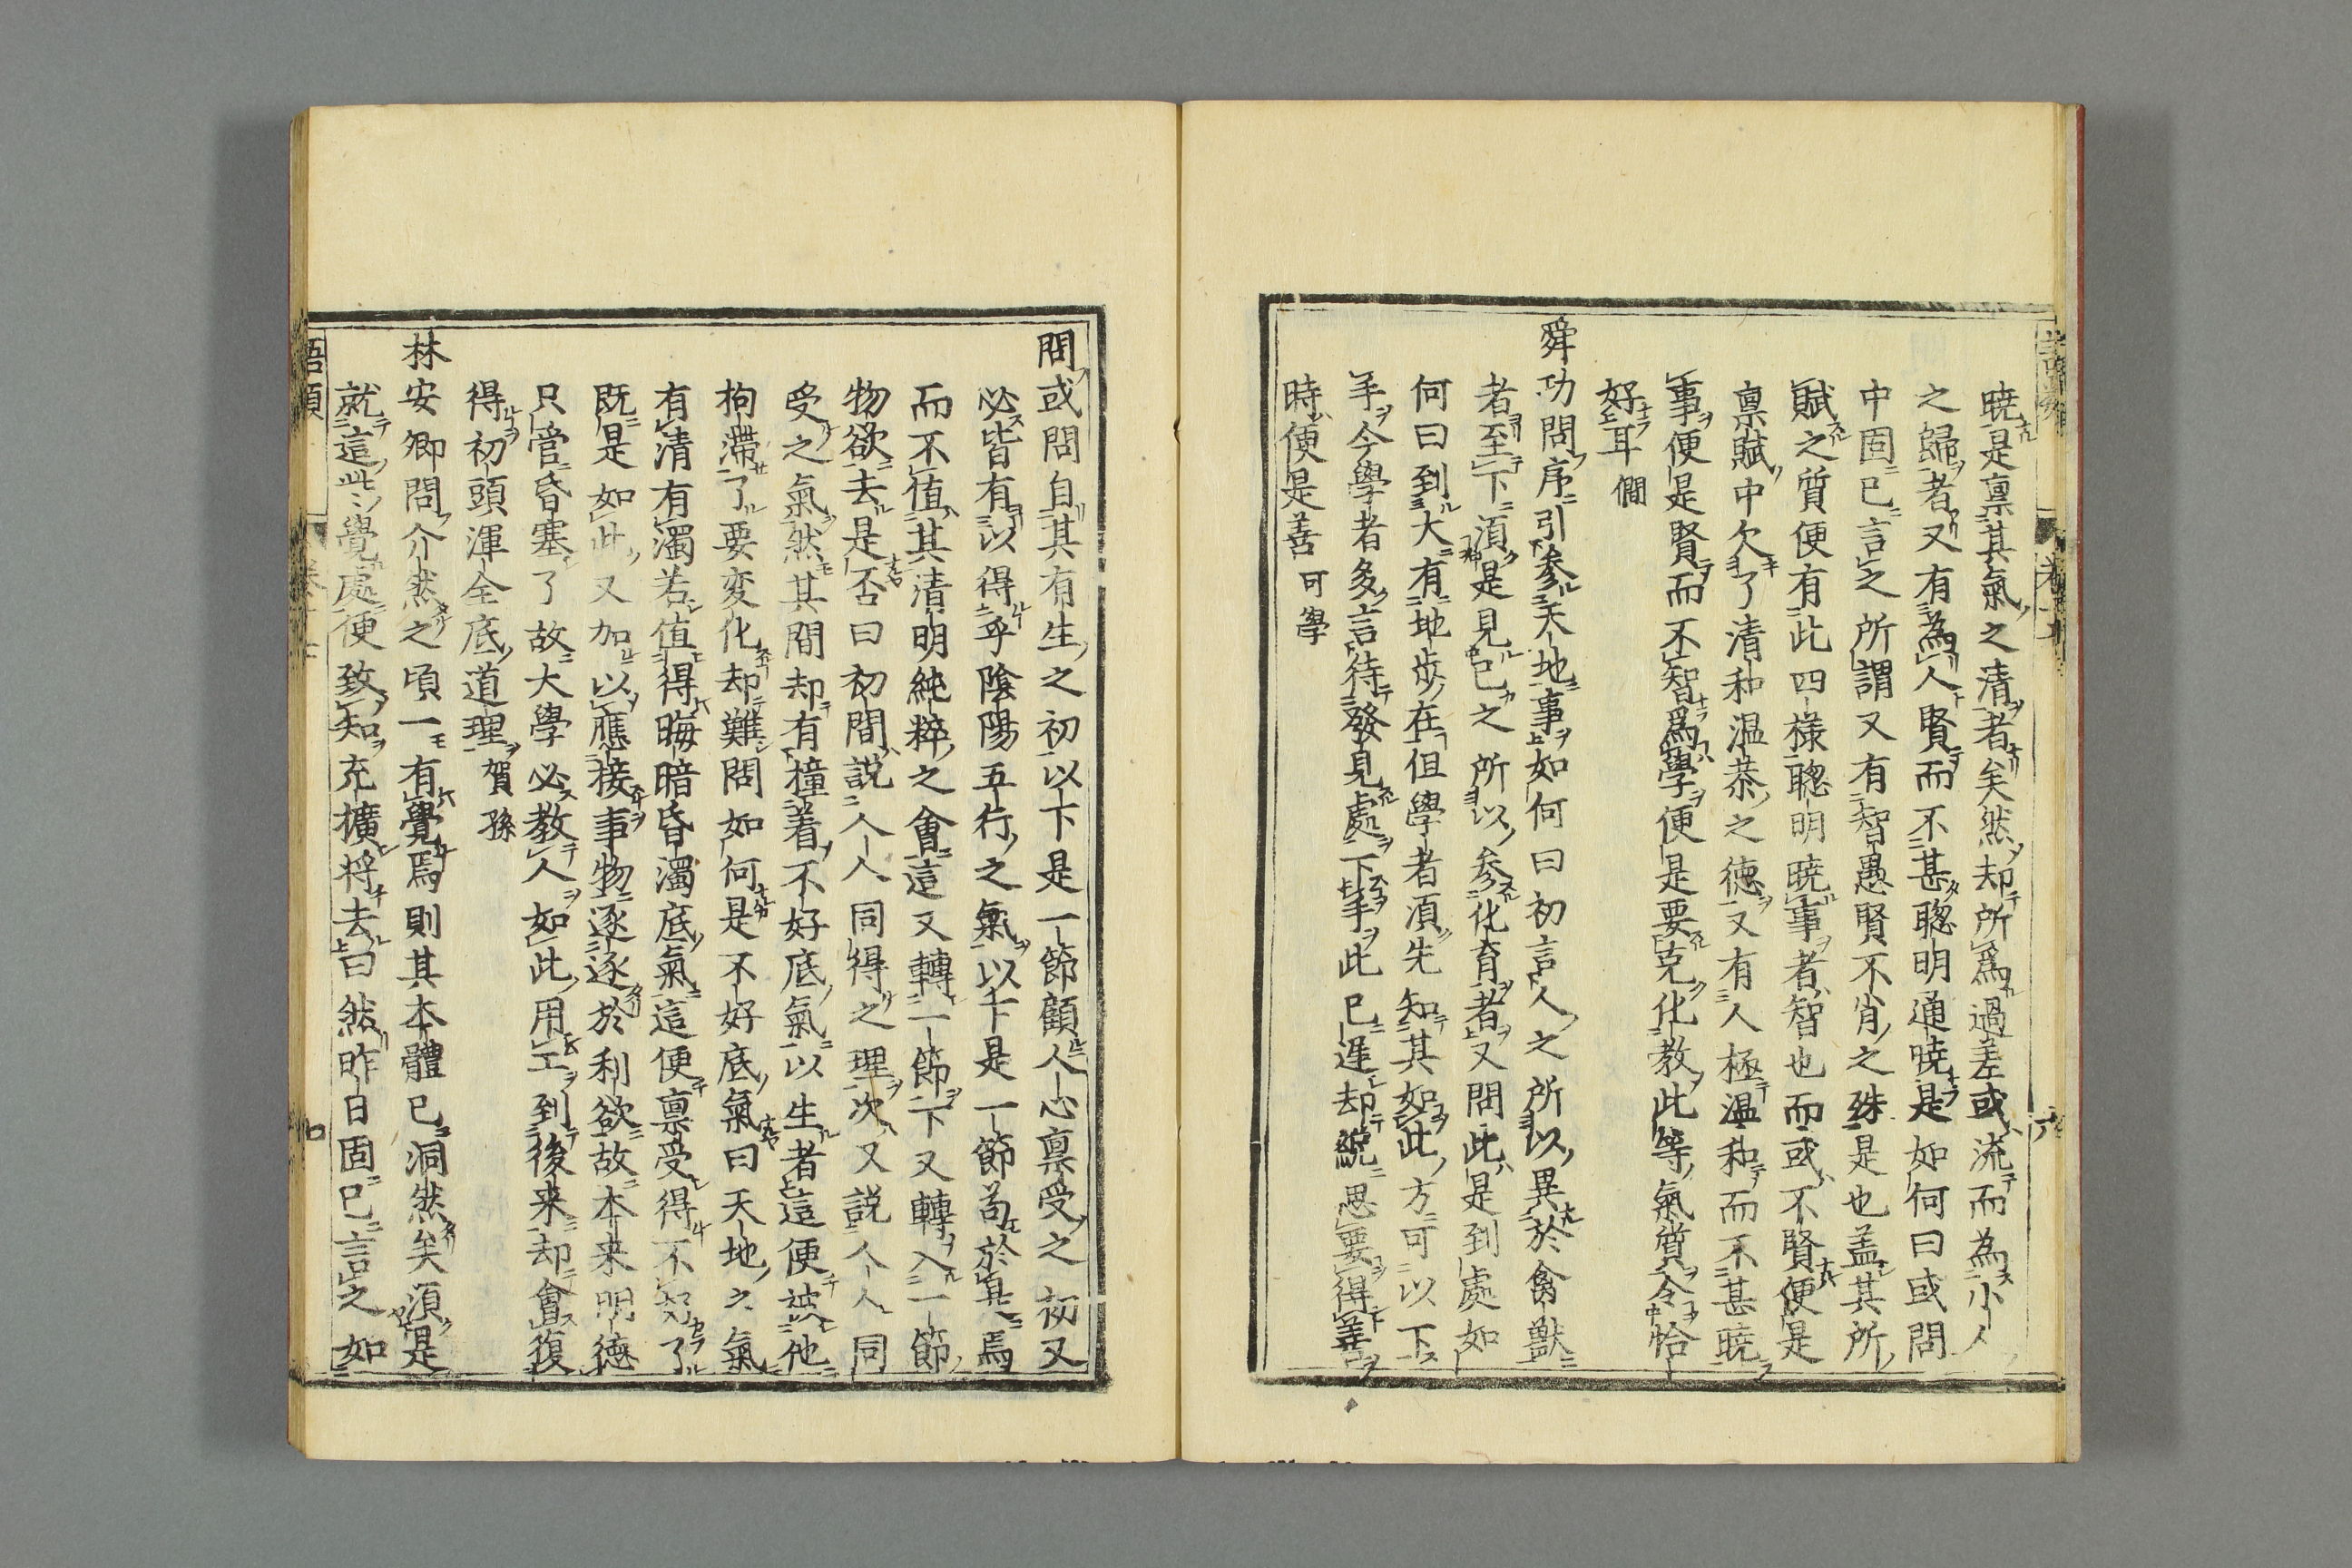 曉是禀其氣之清者矣然却所爲過差或流而為小人
之歸者又有為人賢而不甚聰明通曉是如何曰或問
中固已言之所謂又有智愚賢不肖之殊是也盖其所
賦之質便有此四様聰明曉事者智也而或不賢便是
禀賦中欠了清和温恭之德又有人極温和而不甚曉
事便是賢而不智爲學便是要克化教此等氣質令恰
好耳 僩
舜功問序引参天地事如何曰初言人之所以異於禽獸
者至下湏是見已之所以参化育者又問此是到處如
何曰到大有地歩在但學者湏先知其如此方可以下
手今學者多言待發見處下手此已遲却纔思要得善
時便是善 可學
問或問自其有生之初以下是一節顧人心禀受之初又
必皆有以得乎陰陽五行之氣以下是一節苟於是焉
而不值其清明純粹之會這又轉一節下又轉入一節
物欲去是否曰初間說人人同得之理次又說人人同
受之氣然其間却有撞着不好底氣以生者這便被他
拘滯了要変化却難問如何是不好底氣曰天地之氣
有清有濁若值得晦暗昏濁底氣這便禀受得不好了
既是如此又加以應接事物逐逐於利欲故本来明德
只管昏塞了故大學必教人如此用工到後来却會復
得初頭渾全底道理 賀孫
林安卿問介然之頃一有覺焉則其本體已洞然矣湏是
就這些覺處便致知充擴将去曰然昨日固已言之如
語類